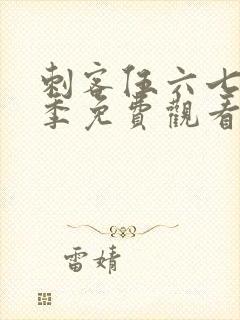 刺客伍六七
季免費觀看
雷婧